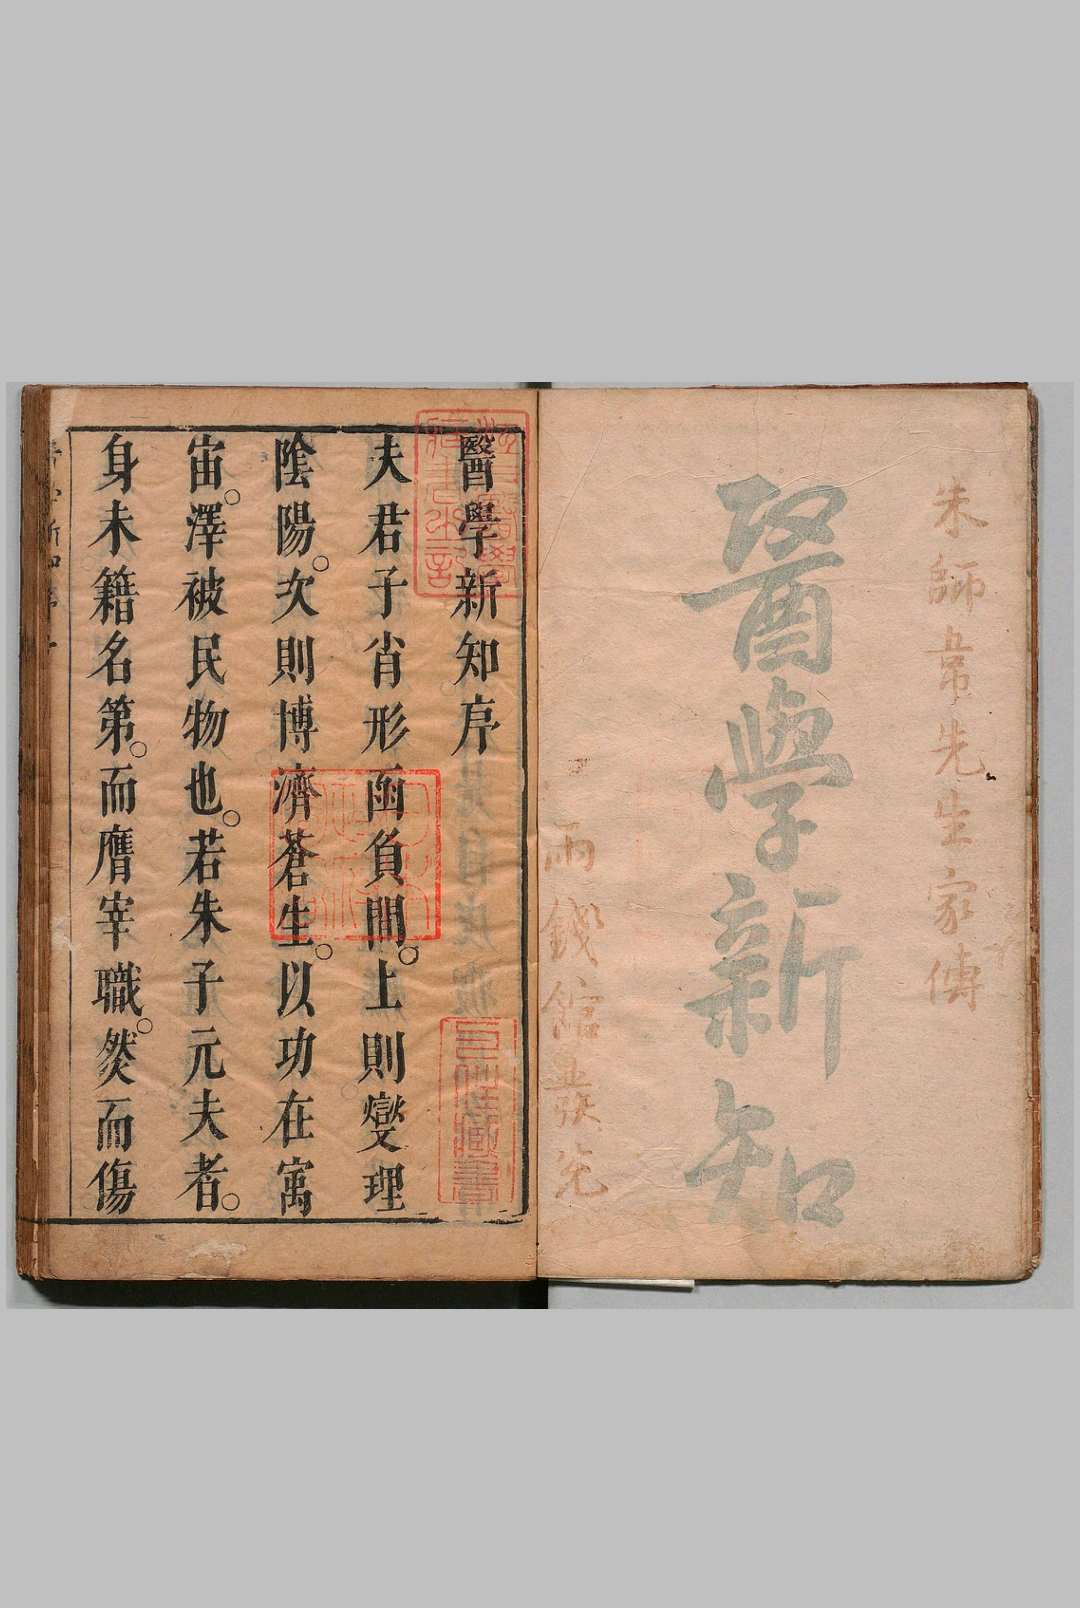 朱師韋先生家傳
醫學新知
雨錢館
醫學新知序
夫君子肖形函負間。上則燮理
陰陽。次則博濟蒼生。以功在寓
宙。澤被民物也。若朱子元夫者。
身未籍名第。而膺宰職。然而傷